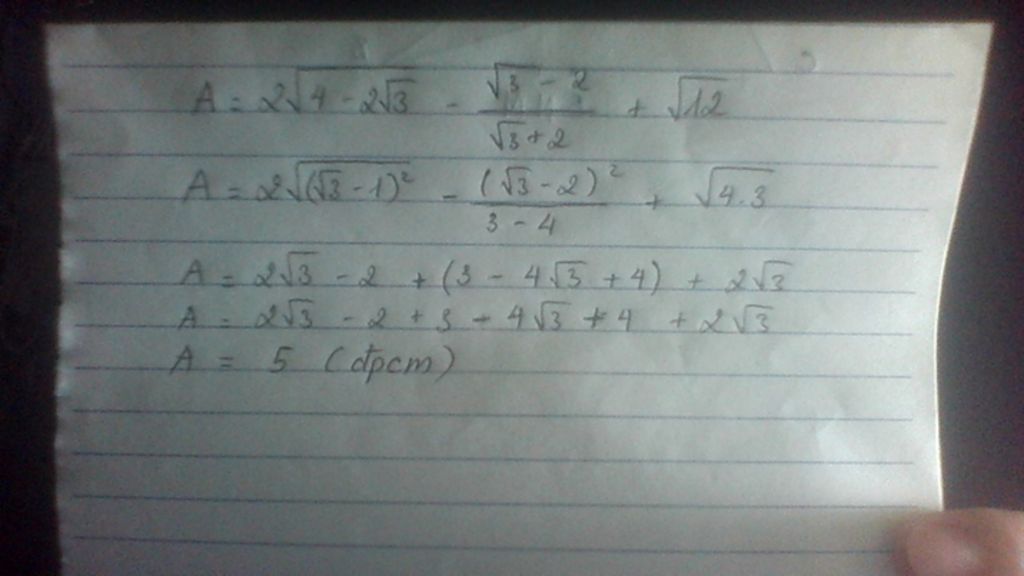 A = 2√(4 - 2√3) - (√3 - 2)/(√3 + 2) + √12
A = 2√((√3 - 1)²) - (√3 - 2)²/(3 - 4) + √(4.3)
A = 2√3 - 2 + (3 - 4√3 + 4) + 2√3
A = 2√3 - 2 + 3 - 4√3 + 4 + 2√3
A = 5 (đpcm)